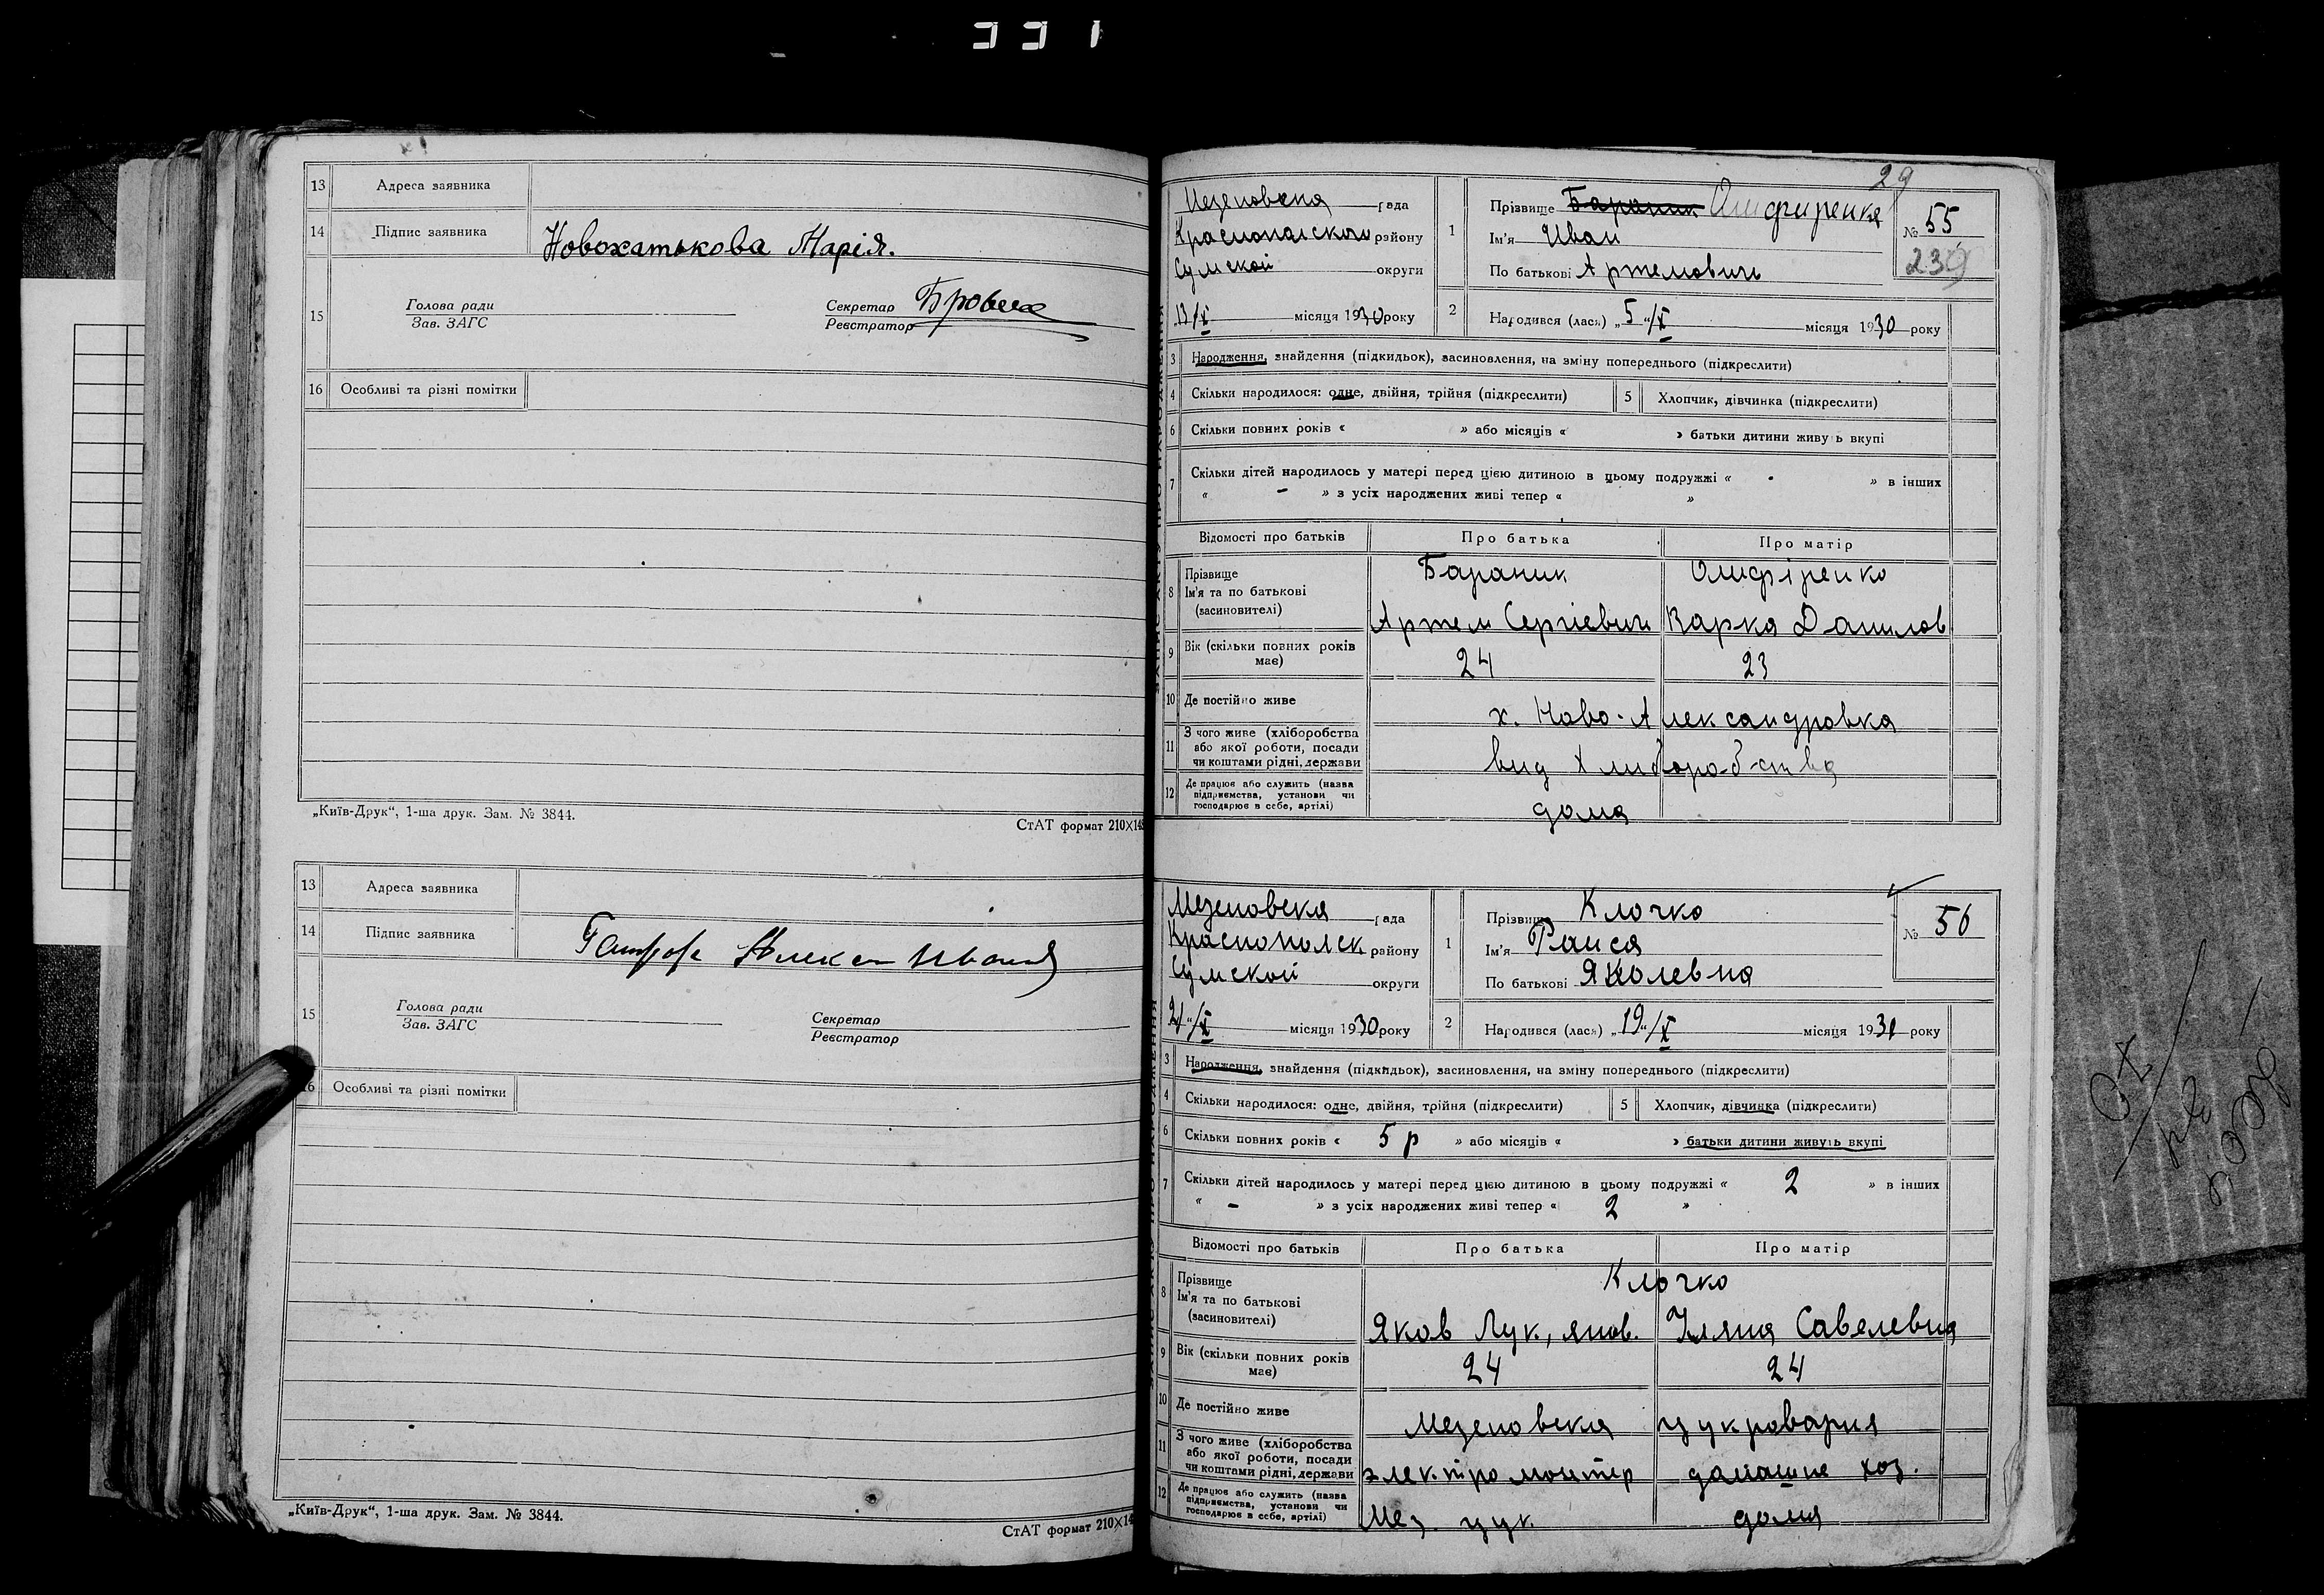 331
13 Адреса заявника
14 Підпис заявника Новохатькова Марія.
15 Голова ради
Зав. ЗАГС
Секретар
Реєстратор
16 Особливі та різні помітки
„Київ-Друк“, 1-ша друк. Зам. № 3844.
СтАТ формат 210×14
13 Адреса заявника
14 Підпис заявника
15 Голова ради
Зав. ЗАГС
Секретар
Реєстратор
16 Особливі та різні помітки
„Київ-Друк“, 1-ша друк. Зам. № 3844.
СтАТ формат 210×14
29
Мезеновская рада
Краснопольского району
Сумской округи
13/X місяця 1930 року
1 Прізвище Бараник Олифиренко
Ім'я Иван
По батькові Артемович
№ 55
239
2 Народився (лася) „5“/X місяця 1930 року
3 Народження, знайдення (підкидьок), васиновлення, на зміну попереднього (підкреслити)
4 Скільки народилося: одне, двійня, трійня (підкреслити) 5 Хлопчик, дівчинка (підкреслити)
6 Скільки повних років « » або місяців « » батьки дитини живуть вкупі
7 Скільки дітей народилось у матері перед цією дитиною в цьому подружжі « - » в інших
« - » з усіх народжених живі тепер « »
Відомості про батьків Про батька Про матір
8 Прізвище
Ім'я та по батькові
(васиновителі)
Бараник Олифіренко
Артем Сергіевич Варка Данилов
9 Вік (скільки повних років має) 24 23
10 Де постійно живе х. Ново-Александровка
11 З чого живе (хліборобства
або якої роботи, посади
чи коштами рідні, держави
вид хлиборобства
12 Де працює або служить (назва
підприємства, установи чи
господарює в себе, артілі)
дома
Мезеновская рада
Краснополск району
Сумской округи
21/X місяця 1930 року
1 Прізвище Клочко
Ім'я Раиса
По батькові Яколевна
№ 56
2 Народився (лася) „19“/X місяця 1930 року
3 Народження, знайдення (підкидьок), васиновлення, на зміну попереднього (підкреслити)
4 Скільки народилося: одне, двійня, трійня (підкреслити) 5 Хлопчик, дівчинка (підкреслити)
6 Скільки повних років « 5 р » або місяців « » батьки дитини живуть вкупі
7 Скільки дітей народилось у матері перед цією дитиною в цьому подружжі « 2 » в інших
« - » з усіх народжених живі тепер « 2 »
Відомості про батьків Про батька Про матір
8 Прізвище
Ім'я та по батькові
(васиновителі)
Клочко
Яков Лук, янов. Уляна Савелевна
9 Вік (скільки повних років має) 24 24
10 Де постійно живе Мезеновская цукроварня
11 З чого живе (хліборобства
або якої роботи, посади
чи коштами рідні, держави
электромонтер домашне хоз.
12 Де працює або служить (назва
підприємства, установи чи
господарює в себе, артілі)
Мез. цук. дома